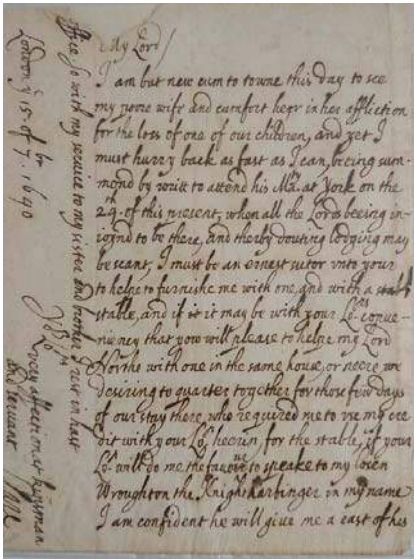 My Lord/
I am but new cum to towne this day to see
my poore wife and cumfort hegr in her affliction
for the loss of one of our children, and yet I
must hurry back as fast as I can, beeing sum-
mond by writt to attend his Ma: at York on the
24th of this present, when all the Lords beeing in-
ioynd to be there, and therby douting lodging may
be scant, I must be an ernest sutor vnto your
to helpe to furnishe me with one, and with a
stable, and if it may be with your Lo:ps conue-
niency that yow will please to helpe my Lord
Northe with one in the same house, or neere
desiring to quarter together for those few days
of our stay there, who required me to vse my cre
dit with your Lo: heerin for the stable, if your
Lo: will do me the favour to speake to my cosen
Wroughton the Knight harbinger in my name
I am confident he will give me a cast of his
office So with my seruice to my sister and brother I rest in hast
London ye 15 of 7br 1640
Yor Lo:ps
very affectionat kinsman
and seruant